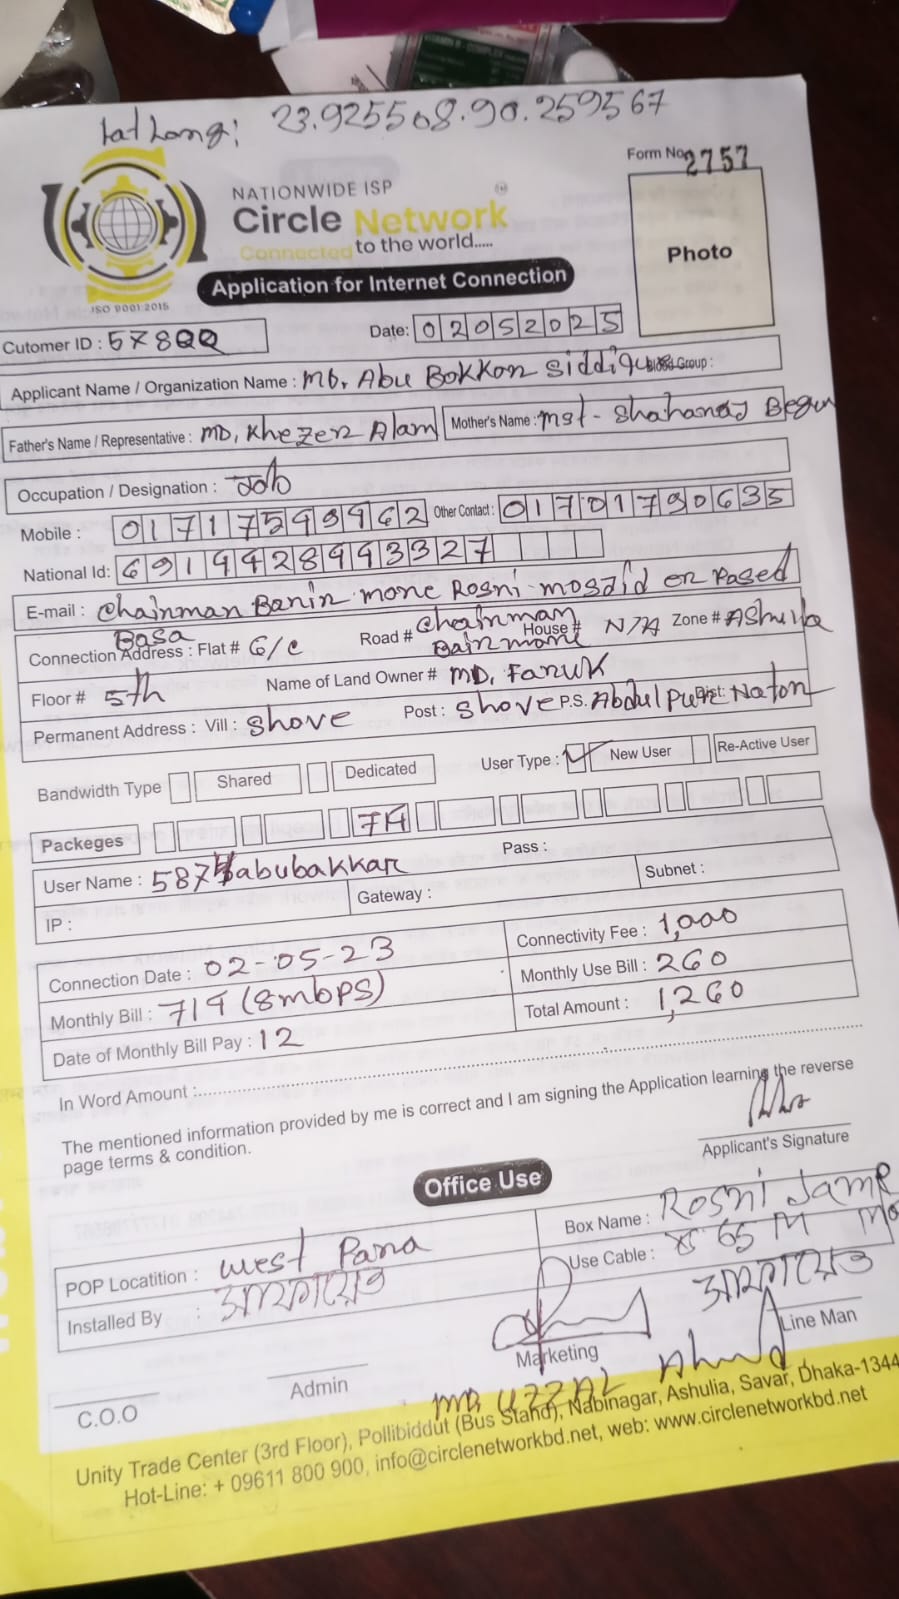 Lat Long: 23.925508.90.259567
Form No 2757
NATIONWIDE ISP
Circle Network
Connected to the world.....
Photo
ISO 9001:2015
Application for Internet Connection
Cutomer ID : 578
Date: 02052025
Applicant Name / Organization Name : MD. Abu Bokkor Siddique Blood Group :
Father's Name / Representative : MD, Khezer Alam Mother's Name : Mst - Shahanaj Begum
Occupation / Designation : Job
Mobile : 01717599962 Other Contact : 01701790635
National Id: 6919428993327
E-mail : Chairman Banir more Rosni moszid er Pased
Basa
Connection Address : Flat # 6/c Road # Chairman House # N/A Zone # Ashulia
Floor # 5th Name of Land Owner # MD, Faruk
Permanent Address : Vill : Shove Post : Shove P.S. Abdulpur Dist: Nator
Bandwidth Type Shared Dedicated User Type : New User Re-Active User
Packeges
User Name : abubakkar Pass :
IP : Gateway : Subnet :
Connection Date : 02-05-23 Connectivity Fee : 1,000
Monthly Bill : 714 (8mbps) Monthly Use Bill : 260
Date of Monthly Bill Pay : 12 Total Amount : 1,260
In Word Amount :
The mentioned information provided by me is correct and I am signing the Application learning the reverse
page terms & condition.
Applicant's Signature
Office Use
POP Locatition : West Para Box Name : Rosni Jame
Installed By : Use Cable : 65 M
Marketing
Line Man
C.O.O Admin MD UZZAL Ahmed
Unity Trade Center (3rd Floor), Pollibiddut (Bus Stand), Nabinagar, Ashulia, Savar, Dhaka-1344
Hot-Line: + 09611 800 900, info@circlenetworkbd.net, web: www.circlenetworkbd.net